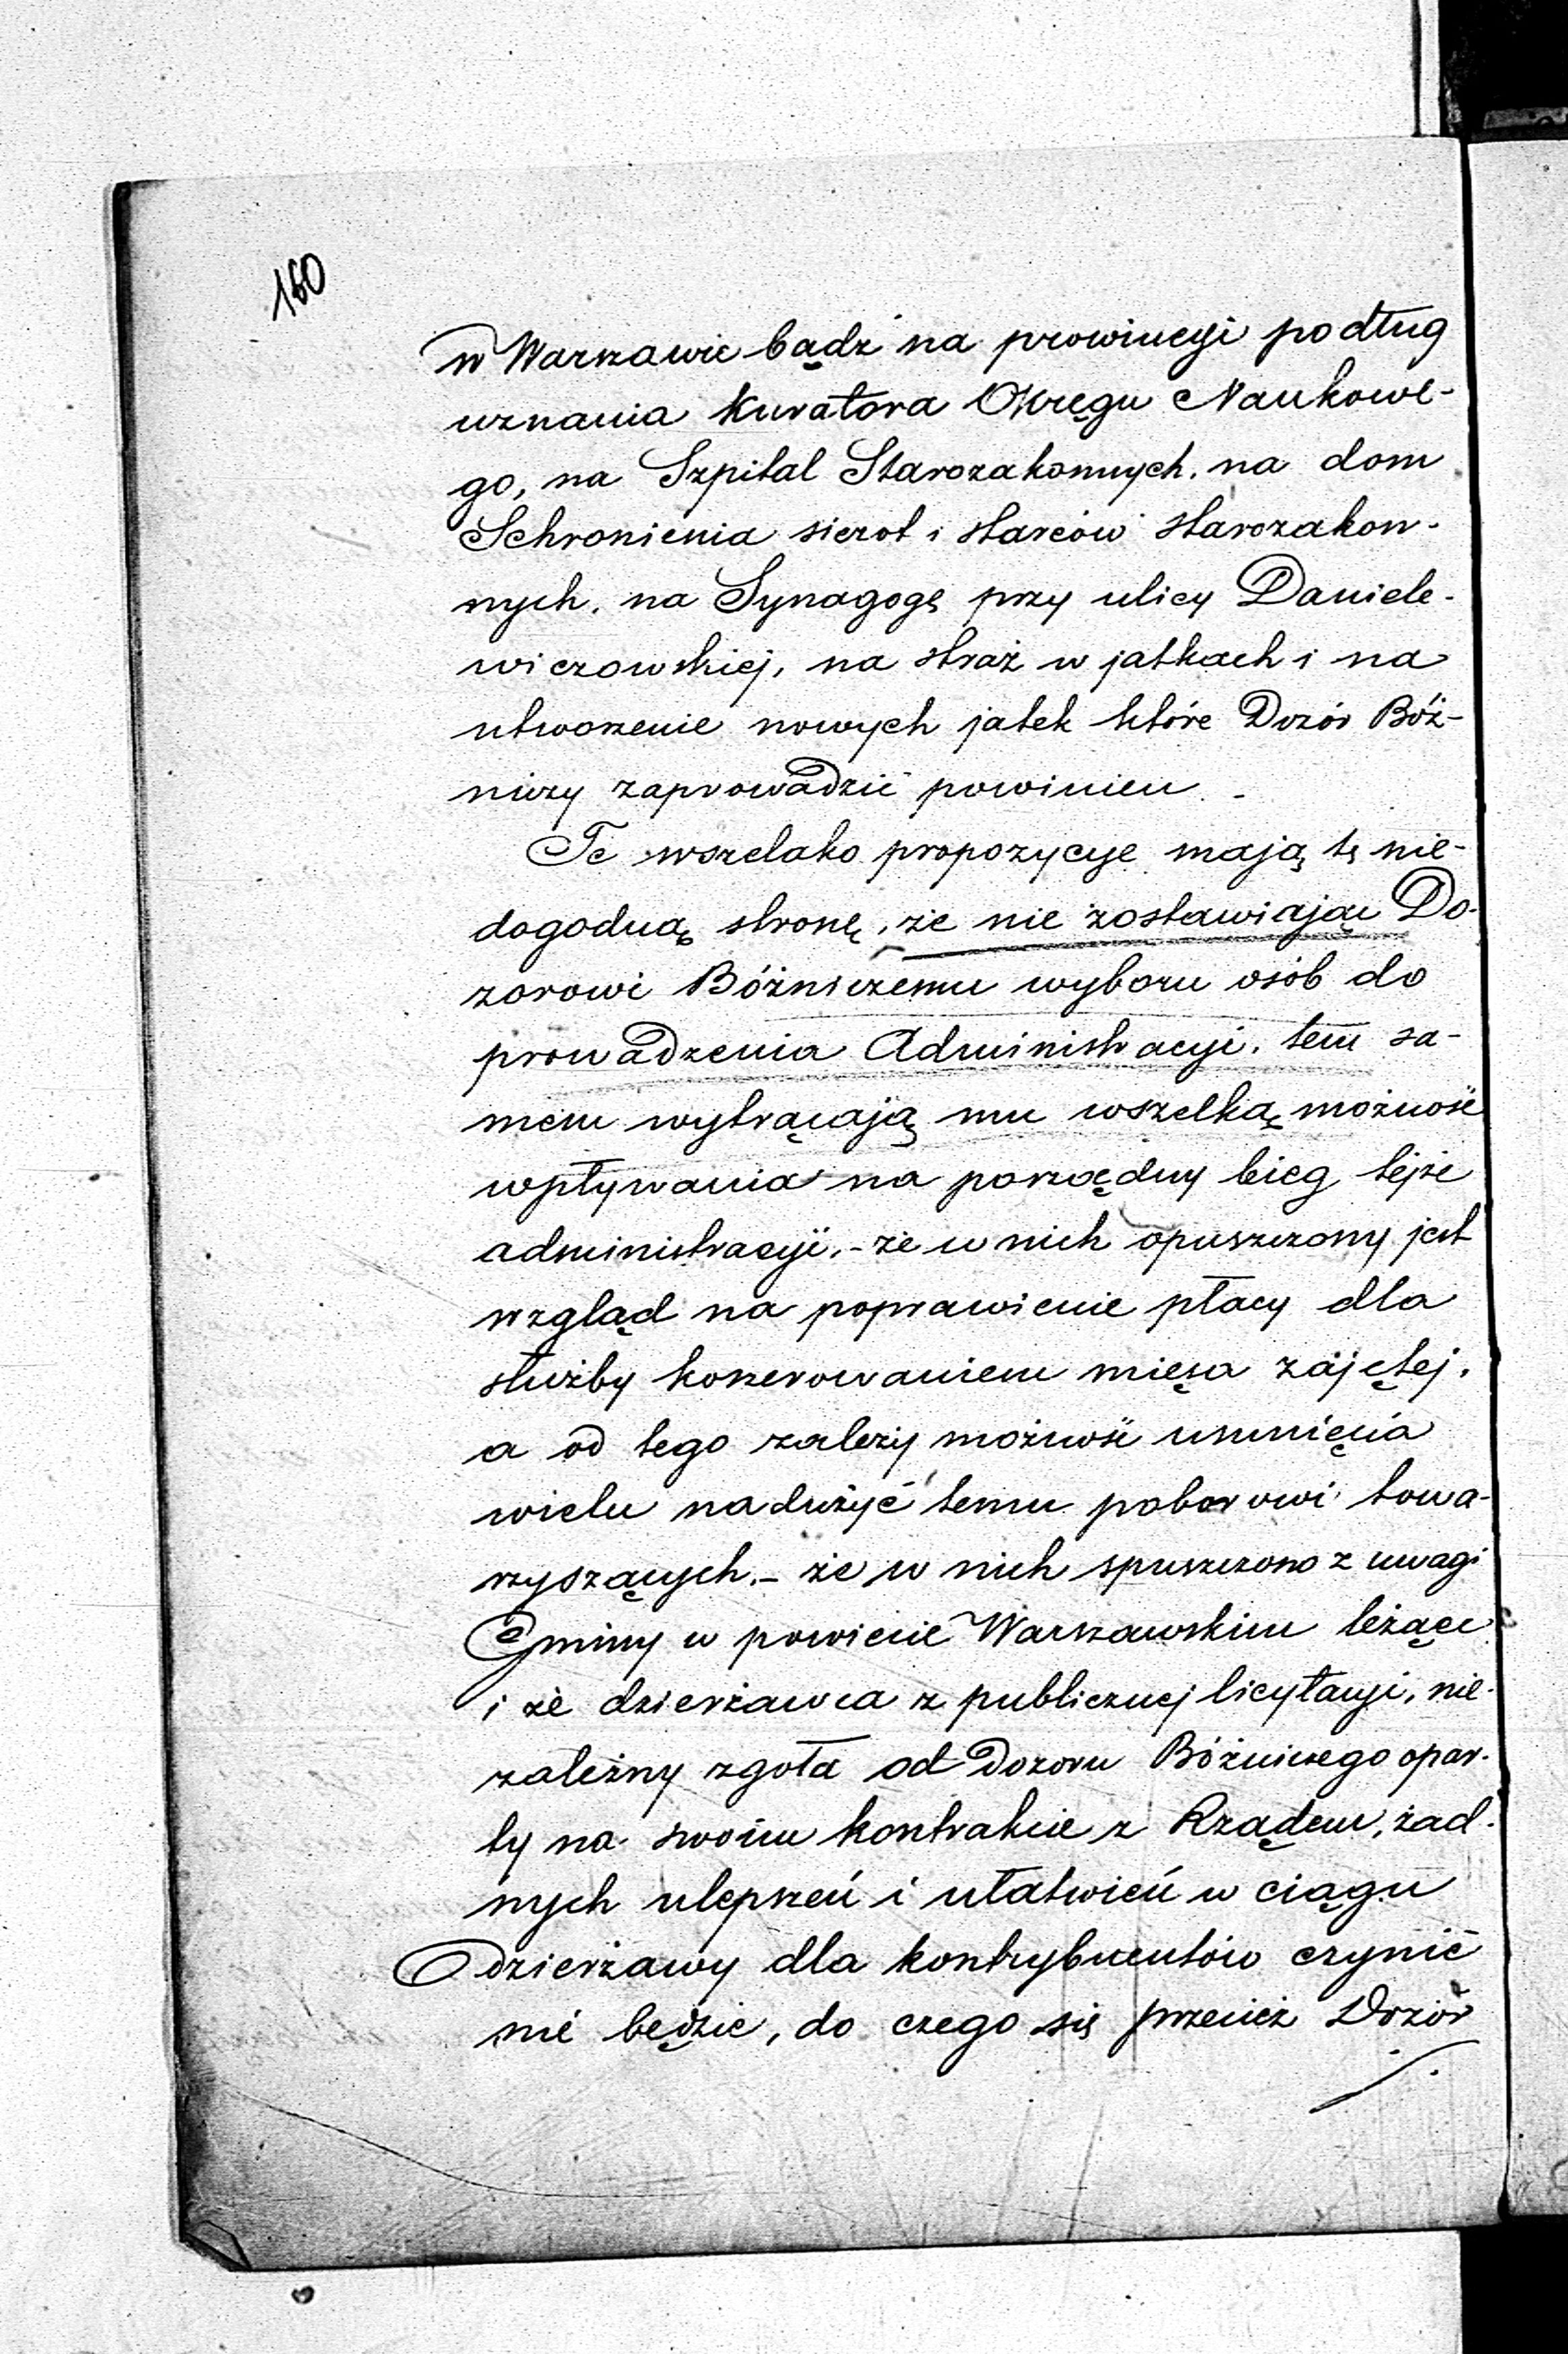 160
w Warszawie bądź na prowincyi podług
uznania Kuratora Okręgu Naukowe-
go, na Szpital Starozakonnych, na dom
Schronienia sierot i starców starozakon-
nych, na Synagogę przy ulicy Daniele-
wiczowskiej, na straż w jatkach i na
utworzenie nowych jatek które Dozór Bóż-
niczy zaprowadzić powinien. -
Te wszelako propozycye mają tę nie-
dogodną stronę, że nie zostawiając Do-
zorowi Bóżniczemu wyboru osób do
prowadzenia Administracyi, tem sa-
mem wytrącają mu wszelką możność
wpływania na porządny bieg tejże
administracyi, - że w nich opuszczony jest
wzgląd na poprawienie płacy dla
służby koszerowaniem mięsa zajętej,
a od tego zależy możność usunięcia
wielu nadużyć temu poborowi towa-
rzyszących. - że w nich spuszczono z uwagi
Gminy w powiecie Warszawskim leżące
i że dzierżawca z publicznej licytacyi, nie-
zależny zgoła od Dozoru Bóżniczego opar-
ty na swoim kontrakcie z Rządem, żad-
nych ulepszeń i ułatwień w ciągu
Dzierżawy dla kontrybuentów czynić
nie będzie, do czego się przecież Dozór
./.